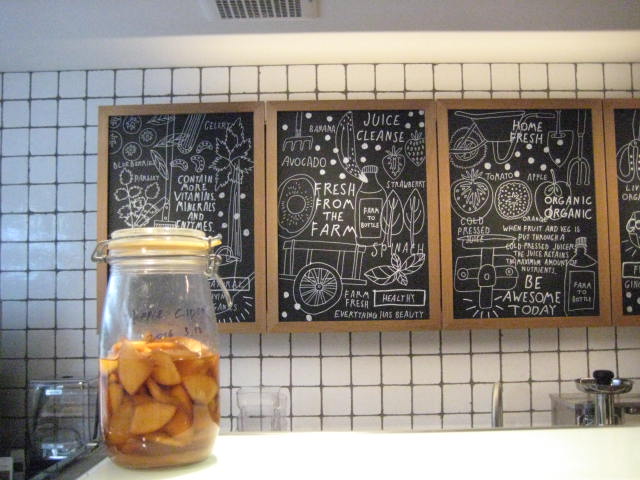 CELERY
BLUEBERRIES
PARSLEY
CONTAIN
MORE
VITAMINS,
MINERALS
AND
ENZYMES.
BANANA
JUICE
CLEANSE
AVOCADO
STRAWBERRY
FRESH
FROM
THE
FARM
FARM
TO
BOTTLE
SPINACH
FARM
FRESH
HEALTHY
EVERYTHING HAS BEAUTY
HOME
FRESH
TOMATO
APPLE
ORANGE
ORGANIC
ORGANIC
COLD
PRESSED
JUICE
WHEN FRUIT AND VEG IS
PUT THROUGH A
COLD PRESSED JUICER
THE JUICE RETAINS
THE MAXIMUM AMOUNT OF
NUTRIENTS.
BE
AWESOME
TODAY
FARM
TO
BOTTLE